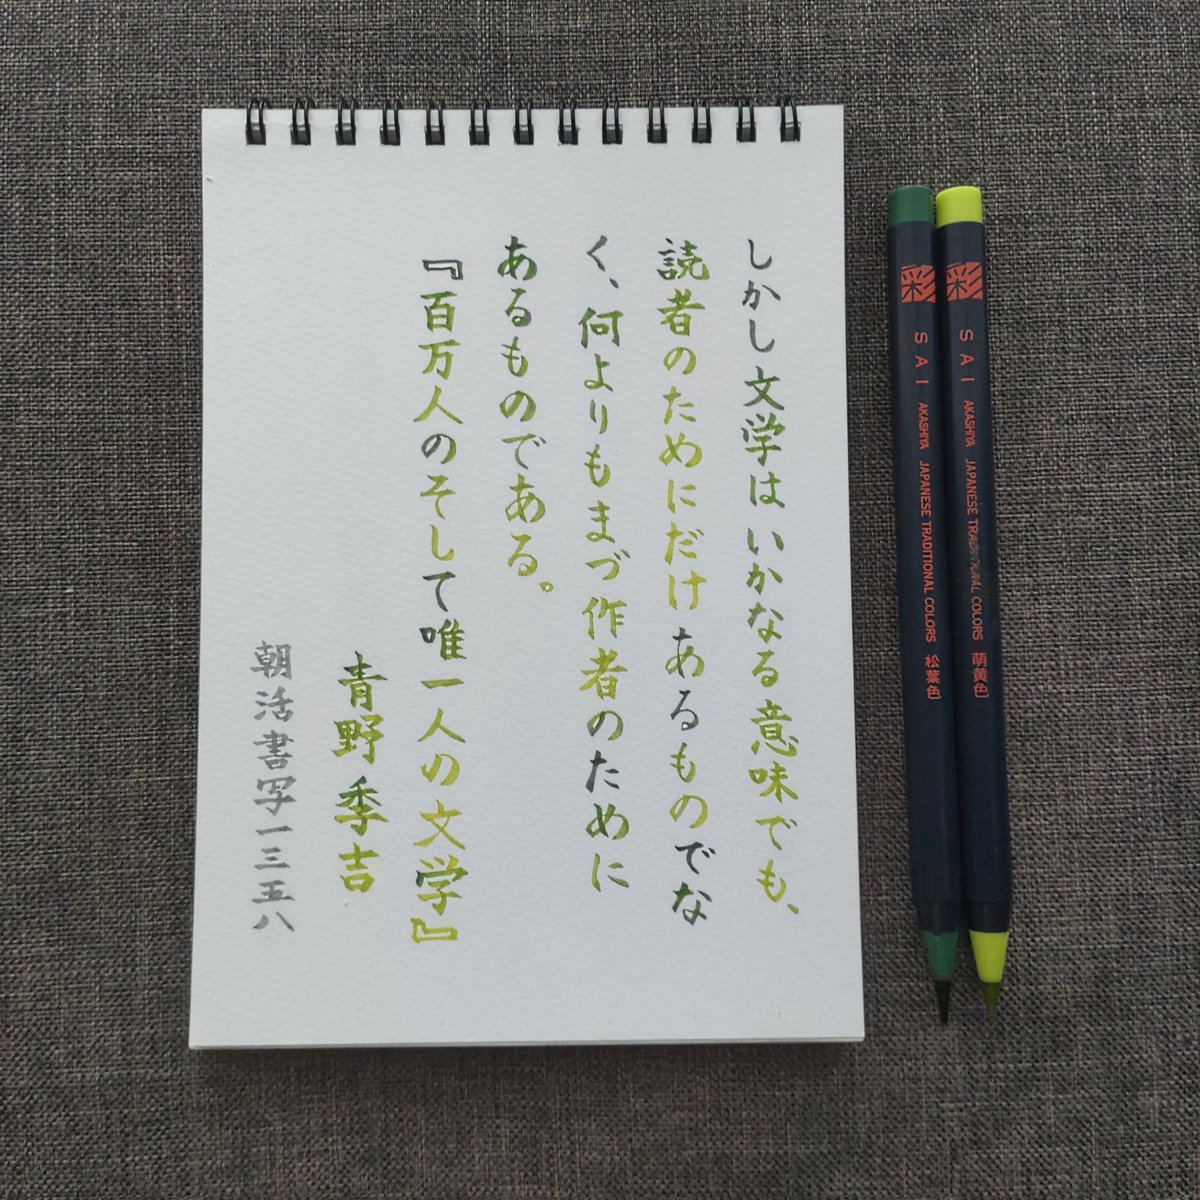 しかし文学はいかなる意味でも、
読者のためにだけあるものでな
く、何よりもまづ作者のために
あるものである。
『百万人のそして唯一人の文学』
青野季吉
朝活書写一三五八
彩 SAI AKASHIYA JAPANESE TRADITIONAL COLORS 松葉色
彩 SAI AKASHIYA JAPANESE TRADITIONAL COLORS 萌黄色